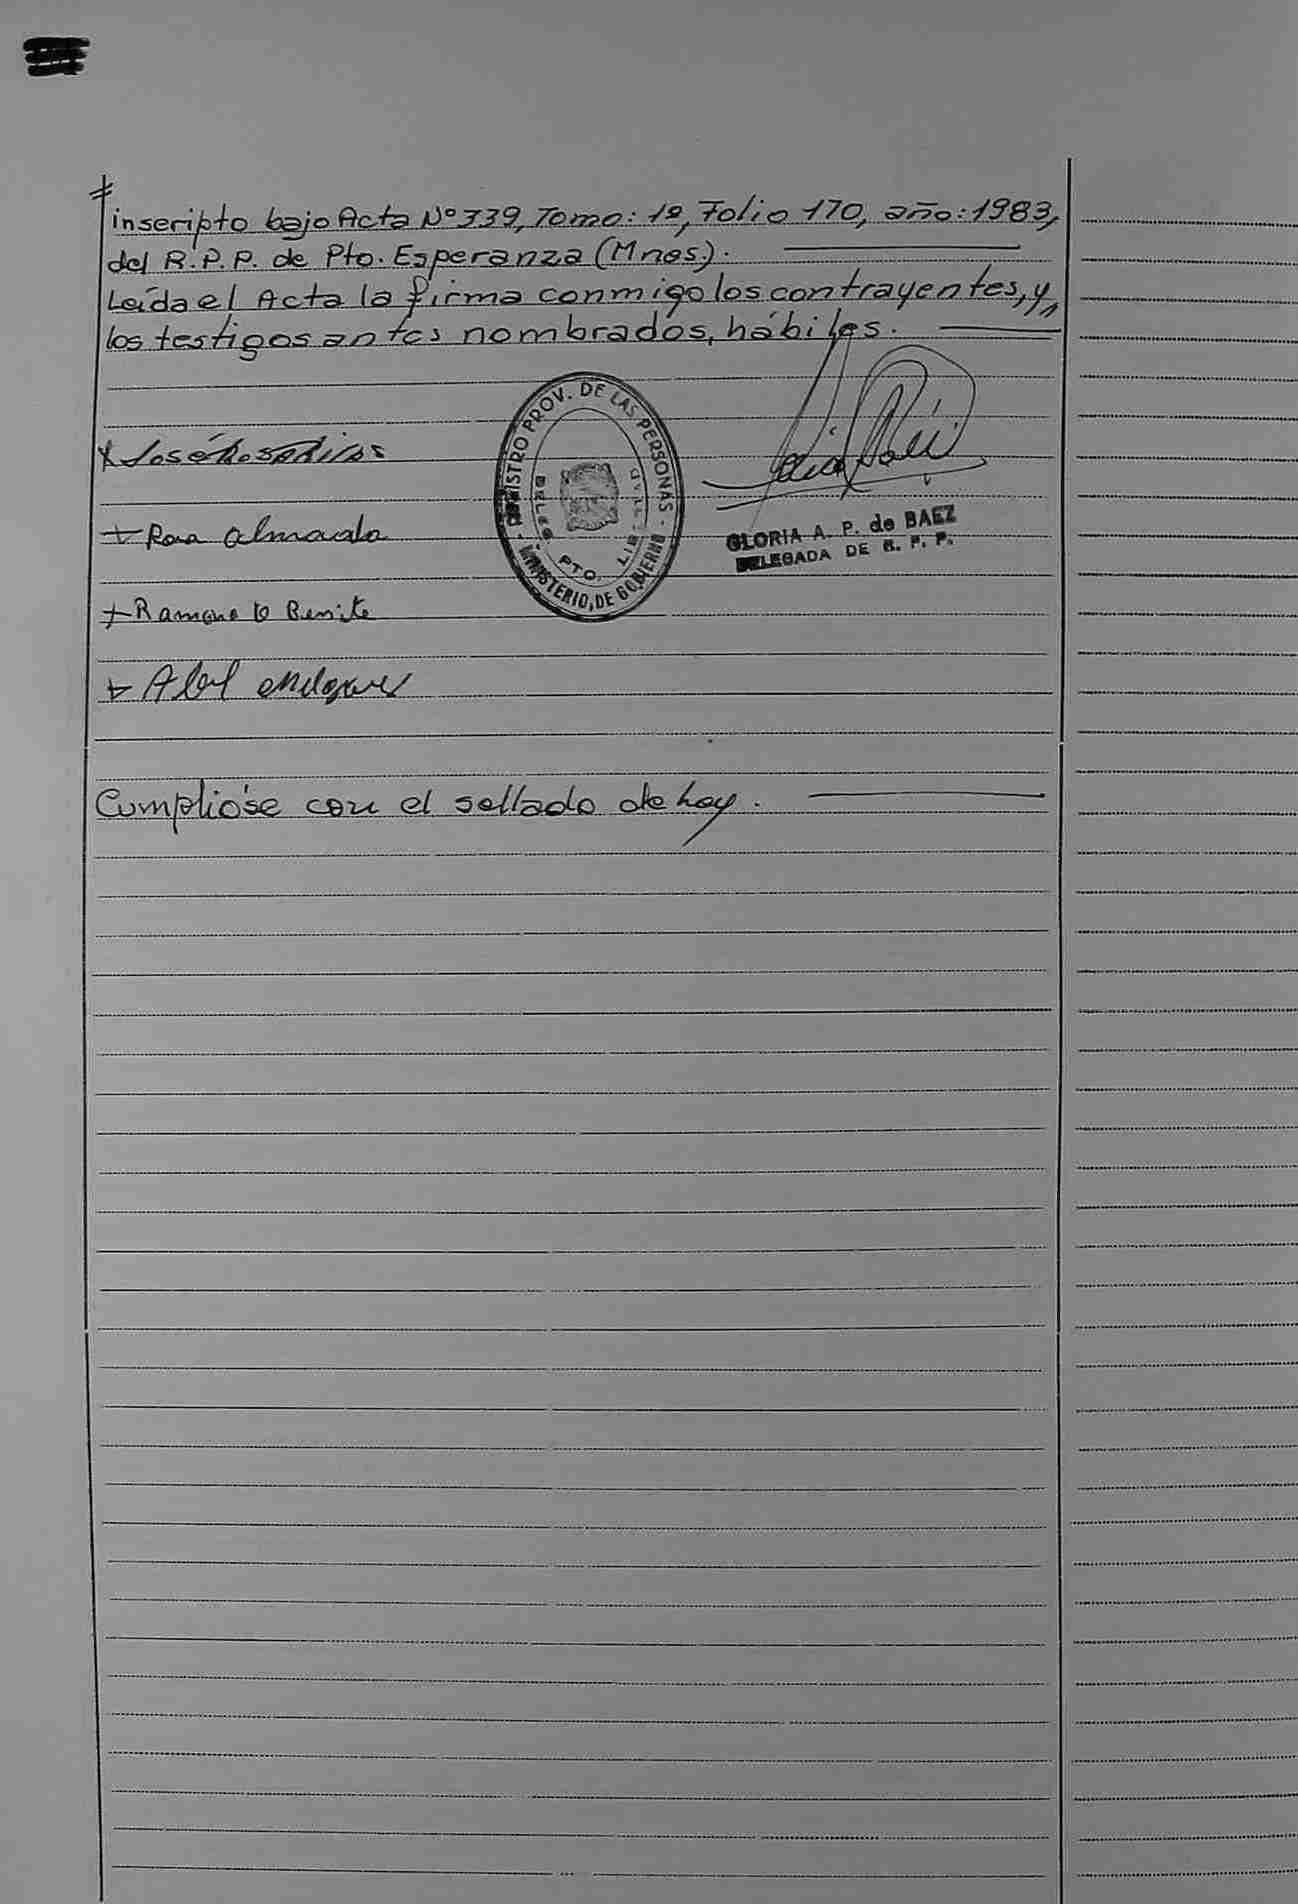 inscripto bajo Acta Nº 339, Tomo: 1º, Folio 170, año: 1983,
del R.P.P. de Pto. Esperanza (Mnes).
Leída el Acta la firma conmigo los contrayentes, y,
los testigos antes nombrados, hábiles.
REGISTRO PROV. DE LAS PERSONAS
DELEG. PTO. LIBERTAD
MINISTERIO, DE GOBIERNO
GLORIA A. P. de BAEZ
DELEGADA DE R. P. P.
x José
+ Rosa Almada
+ Ramona Benite
+ Abel
Cumplióse con el sellado de hoy.